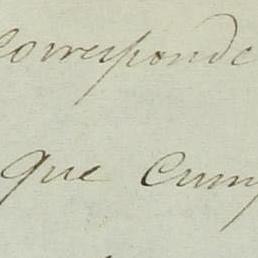 Corresponde
que cump